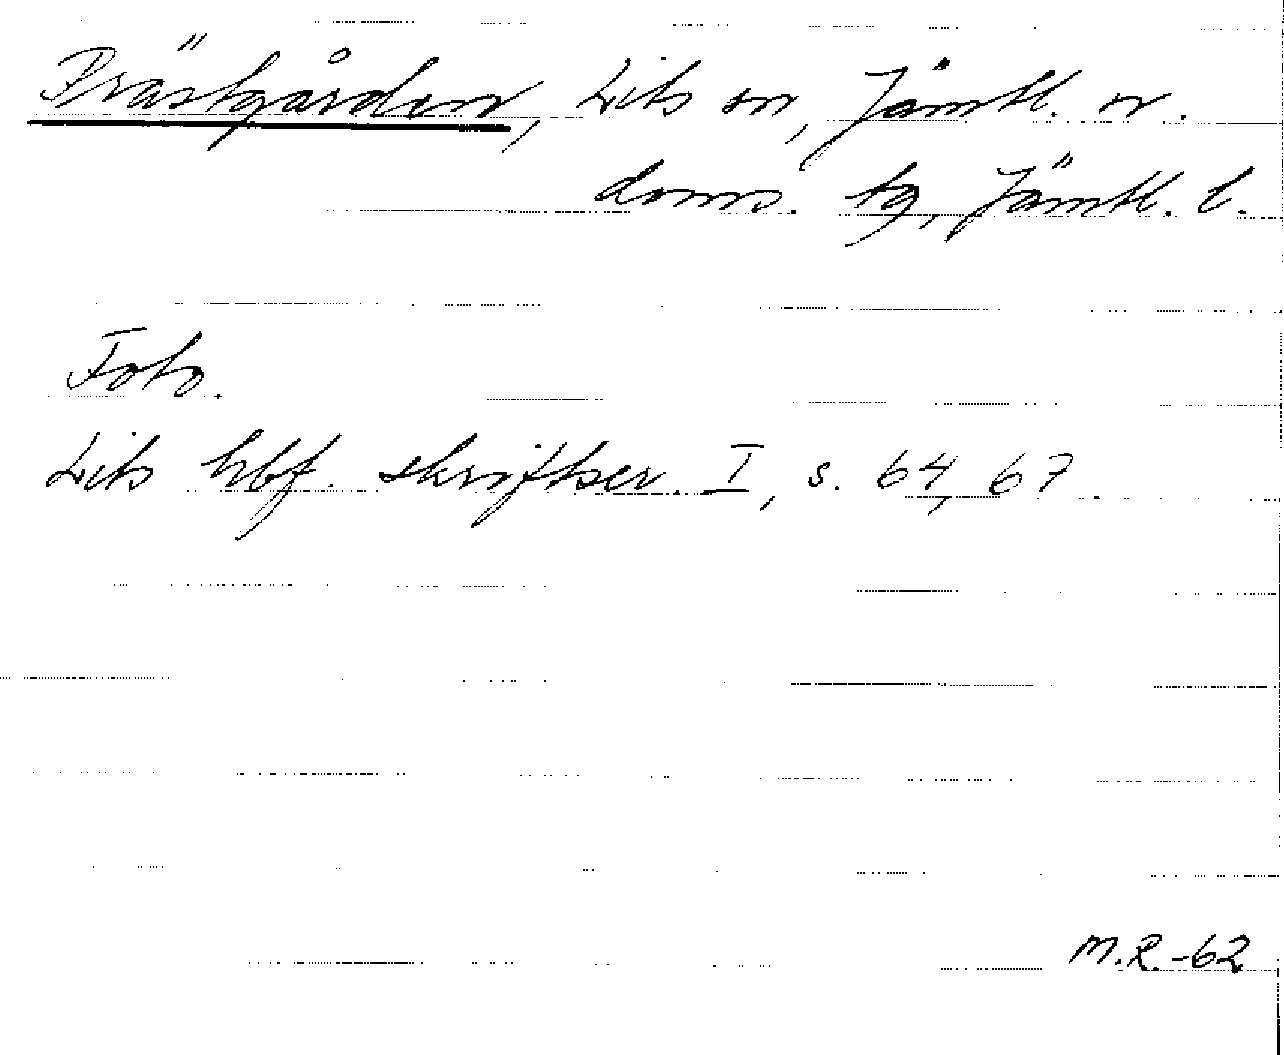 Prästgården, Lits sn, Jämtl. n.
doms. tg, Jämtl. l.
Foto.
Lits hbf. skriftser. I, s. 64, 67.
M.R.-62